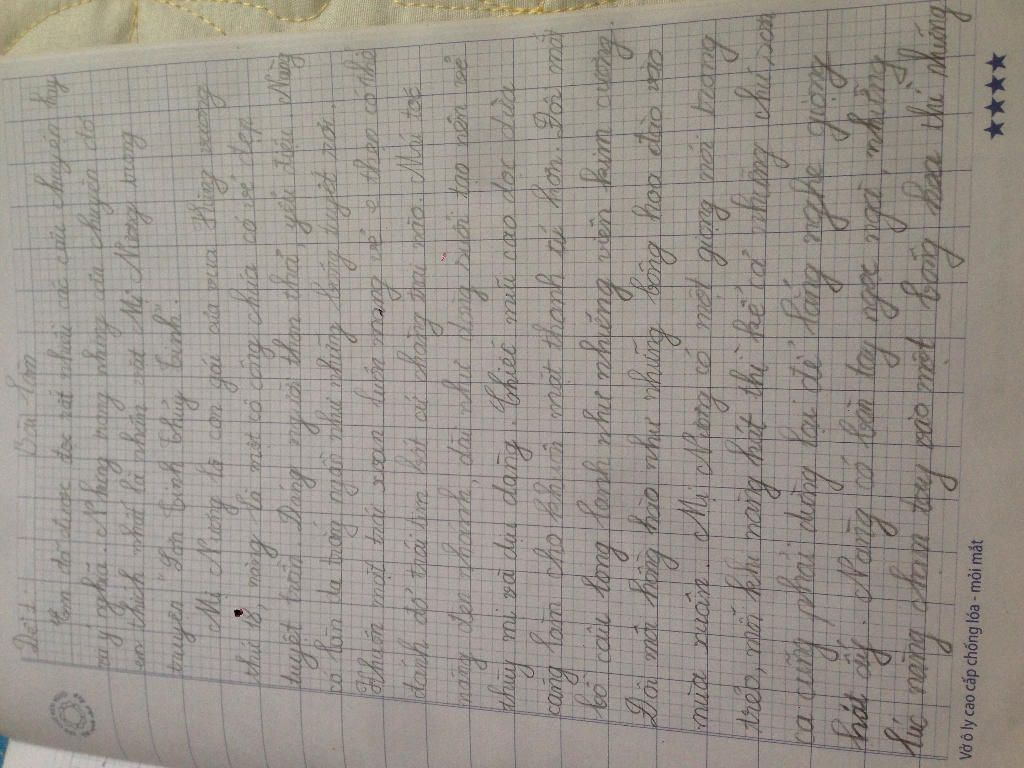 Đề 1: Bài làm
Em đã được đọc rất nhiều các câu chuyện hay
ý nghĩa. Nhưng trong những câu chuyện đó
em thích nhất là nhân vật Mị Nương trong
truyện "Sơn Tinh Thủy Tinh".
Mị Nương là con gái của vua Hùng Vương
thứ 18, nàng là một cô công chúa có vẻ đẹp
tuyệt trần. Dáng người thon thả, yểu điệu. Nàng
có làn da trắng ngần như những bông tuyết rơi.
Khuôn mặt trái xoan luôn mang vẻ e thẹn có thể
đánh đổ trái tim bất cứ chàng trai nào. Mái tóc
nàng đen nhánh, dài như dòng suối tạo nên vẻ
thùy mị và dịu dàng. Chiếc mũi cao dọc dừa
càng làm cho khuôn mặt thanh tú hơn. Đôi mắt
bồ câu long lanh như những viên kim cương
Đôi môi hồng hào như những bông hoa đào vào
mùa xuân. Mị Nương có một giọng nói trong
trẻo, mỗi khi nàng hát thì kể cả những chú sơn
ca cũng phải dừng lại để lắng nghe giọng
hát ấy. Nàng có bàn tay ngọc ngà, những
lúc nàng chạm tay vào một bông hoa thì những
Vở ô ly cao cấp chống lóa - mỏi mắt